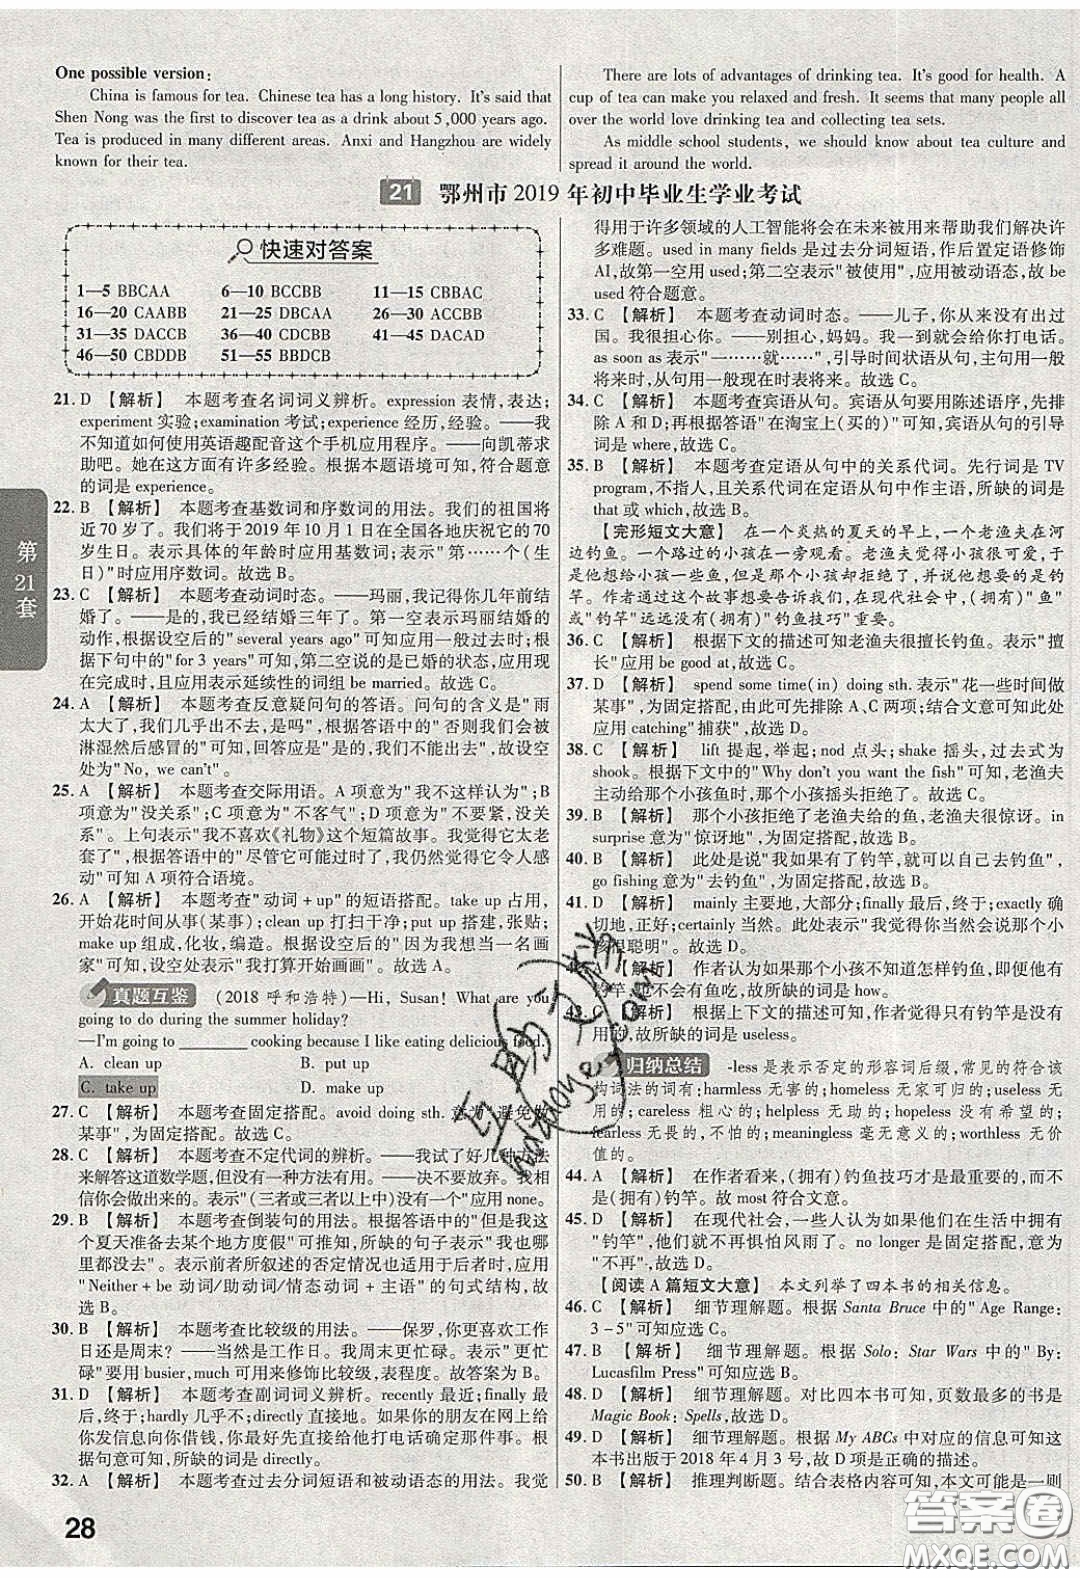 One possible version:
China is famous for tea. Chinese tea has a long history. It's said that
Shen Nong was the first to discover tea as a drink about 5,000 years ago.
Tea is produced in many different areas. Anxi and Hangzhou are widely
known for their tea.
There are lots of advantages of drinking tea. It's good for health. A
cup of tea can make you relaxed and fresh. It seems that many people all
over the world love drinking tea and collecting tea sets.
As middle school students, we should know about tea culture and
spread it around the world.
21 鄂州市 2019 年初中毕业生学业考试
快速对答案
1—5 BBCAA 6—10 BCCBB 11—15 CBBAC
16—20 CAABB 21—25 DBCAA 26—30 ACCBB
31—35 DACCB 36—40 CDCBB 41—45 DACAD
46—50 CBDDB 51—55 BBDCB
21. D 【解析】 本题考查名词词义辨析。expression 表情,表达;
experiment 实验;examination 考试;experience 经历,经验。——我
不知道如何使用英语趣配音这个手机应用程序。——向凯蒂求
助吧。她在这方面有许多经验。根据本题语境可知,符合题意
的词是 experience。
22. B 【解析】 本题考查基数词和序数词的用法。我们的祖国将
近 70 岁了。我们将于 2019 年 10 月 1 日在全国各地庆祝它的 70
岁生日。表示具体的年龄时应用基数词;表示"第……个(生
日)"时应用序数词。故选 B。
23. C 【解析】 本题考查动词时态。——玛丽,我记得你几年前结
婚了。——是的,我已经结婚三年了。第一空表示玛丽结婚的
动作,根据设空后的" several years ago"可知应用一般过去时;根
据下句中的" for 3 years"可知,第二空说的是已婚的状态,应用现
在完成时,且应用表示延续性的词组 be married。故选 C。
24. A 【解析】 本题考查反意疑问句的答语。问句的含义是"雨
太大了,我们几乎出不去,是吗",根据答语中的"否则我们会被
淋湿然后感冒的"可知,回答应是"是的,我们不能",故设空
处为"No, we can't"。
25. A 【解析】 本题考查交际用语。A 项意为"我不这样认为";B
项意为"没关系";C 项意为"不客气";D 项意为"不要紧,没关
系"。上句表示"我不喜欢《礼物》这个短篇故事。我觉得它太老
套了",根据答语中的"尽管它可能过时了,我仍然觉得它令人感
动"可知 A 项符合语境。
26. A 【解析】 本题考查"动词 +up"的短语搭配。take up 占用,
开始花时间从事(某事);clean up 打扫干净;put up 搭建,张贴;
make up 组成,化妆,编造。根据设空后的"因为我想当一名画
家"可知,设空处表示"我打算开始画画"。故选 A。
真题互鉴 (2018 呼和浩特)—Hi, Susan! What are you
going to do during the summer holiday?
—I'm going to ________ cooking because I like eating delicious food.
A. clean up B. put up
C. take up D. make up
27. C 【解析】 本题考查固定搭配。avoid doing sth. 意为"避免做
某事",为固定搭配。故选 C。
28. C 【解析】 本题考查不定代词的辨析。——我试了好几种方法
来解答这道数学题,但没有一种方法有用。——别放弃。我相
信你会做出来的。表示"(三者或三者以上)中没有一个"应用 none。
29. B 【解析】 本题考查倒装句的用法。根据答语中的"但是我这
个夏天准备去某个地方度假"可推知,所缺的句子表示"我也哪
里都没去"。表示前者所叙述的否定情况也适用于后者时,应用
"Neither + be 动词/助动词/情态动词 + 主语"的句式结构,故选 B。
30. B 【解析】 本题考查比较级的用法。——保罗,你更喜欢工作
日还是周末?——当然是工作日。我周末更忙碌。表示"更忙
碌"要用 busier,much 可用来修饰比较级,表程度。故答案为 B。
31. D 【解析】 本题考查副词词义辨析。recently 最近;finally 最
后,终于;hardly 几乎不;directly 直接地。如果你的朋友在网上给
你发信息向你借钱,你最好直接给他打电话确定那件事。根据
句意可知,所缺的词是 directly。
32. A 【解析】 本题考查过去分词短语和被动语态的用法。我觉
得用于许多领域的人工智能将会在未来被用于帮助我们解决许
多难题。used in many fields 是过去分词短语,作后置定语修饰
AI,故第一空用 used;第二空表示"被使用",应用被动语态,故 be
used 符合题意。
33. C 【解析】 本题考查动词时态。——儿子,你从来没有出过
国。我很担心你。——别担心,妈妈。我一到就会给你打电话。
as soon as 表示"一……就……",引导时间状语从句,主句用一般
将来时,从句用一般现在时表将来。故选 C。
34. C 【解析】 本题考查宾语从句。宾语从句要用陈述语序,先排
除 A 和 D;再根据答语"在淘宝上(买的)"可知,宾语从句的引导
词是 where,故选 C。
35. B 【解析】 本题考查定语从句中的关系代词。先行词是 TV
program,不指人,且关系代词在定语从句中作主语,所缺的词是
that 或 which,故选 B。
【完形短文大意】 在一个炎热的夏天的早上,一个老渔夫在河
边钓鱼。一个路过的小孩在一旁观看。老渔夫觉得小孩很可爱,于
是他想给小孩一些鱼,但是这个小孩拒绝了,因为他想要的是钓
竿。作者想要通过这个故事要告诉我们,在现代社会中,(拥有)"鱼"
或"钓竿"远远没有(拥有)"钓鱼技巧"重要。
36. C 【解析】 根据下文的描述可知老渔夫很擅长钓鱼。表示"擅
长"应用 be good at,故选 C。
37. D 【解析】 spend some time(in) doing sth. 表示"花一些时间做
某事",为固定搭配,由此可先排除 A、C 两项;结合文意可知此处
应用 catching"捕获",故选 D。
38. C 【解析】 lift 提起,举起;nod 点头;shake 摇头,过去式为
shook。根据下文中的"Why don't you want the fish"可知,老渔夫
主动给那个小孩鱼时,小孩摇头拒绝了。故选 C。
39. B 【解析】 那个小孩拒绝了老渔夫给的鱼,老渔夫很惊讶。in
surprise 意为"惊讶地",为固定搭配,故选 B。
40. B 【解析】 此处是说"我如果有了钓竿,就可以自己去钓鱼",
go fishing 意为"去钓鱼",为固定搭配,故选 B。
41. D 【解析】 mainly 主要地,大部分;finally 最后,终于;exactly 确
切地,正好;certainly 当然。此处表示"我觉得你当然会说这个小
孩很聪明"。故选 D。
42. A 【解析】 作者认为如果那个小孩不知道怎样钓鱼,即便他有
钓竿,也不会有鱼吃,故所缺的词是 how。
43. C 【解析】 根据上下文的描述可知,作者觉得只有钓竿是没有
用的,故所缺的词是 useless。
归纳总结 -less 是表示否定的形容词后缀,常见的符合该
构词法的词有:harmless 无害的;homeless 无家可归的;useless 无
用的;careless 粗心的;helpless 无助的;hopeless 没有希望的;
fearless 无畏的,不怕的;meaningless 毫无意义的;worthless 无价
值的。
44. A 【解析】 在作者看来,(拥有)钓鱼技巧才是最重要的,而不
是(拥有)钓竿。故 most 符合文意。
45. D 【解析】 在现代社会,一些人认为如果他们在生活中拥有
"钓竿",他们就不再惧怕风雨了。no longer 是固定搭配,意为
"不再",故选 D。
【阅读 A 篇短文大意】 本文列举了四本书的相关信息。
46. C 【解析】 细节理解题。根据 Santa Bruce 中的"Age Range:
3-5"可知应选 C。
47. B 【解析】 细节理解题。根据 Solo: Star Wars 中的"By:
Lucasfilm Press"可知应选 B。
48. D 【解析】 细节理解题。对比四本书可知,页数最多的书是
Magic Book: Spells,故选 D。
49. D 【解析】 细节理解题。根据 My ABCs 中对应的信息可知这
本书出版于 2018 年 4 月 3 号,故 D 项是正确的描述。
50. B 【解析】 推理判断题。结合表格内容可知,本文可能是一则
第21套
28
答案圈
MXQE.COM